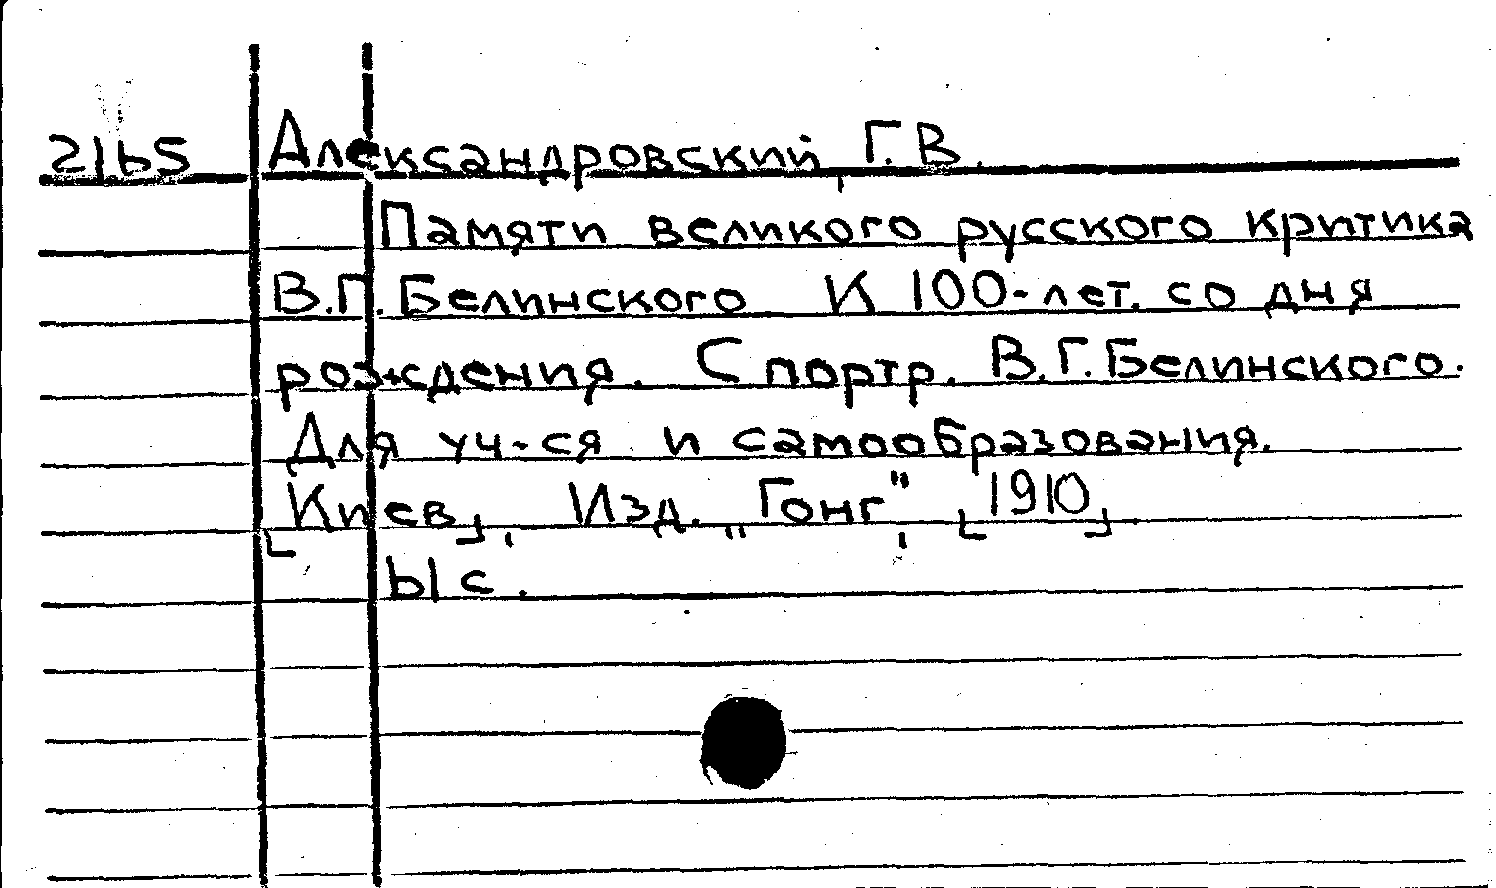 2165 Александровский, Г.В.
Памяти великого русского критика
В.Г.Белинского К 100-лет. со дня
рождения. С портр. В.Г.Белинского.
Для уч-ся и самообразования.
[Киев], Изд. „Гонг", [1910]
61 с.